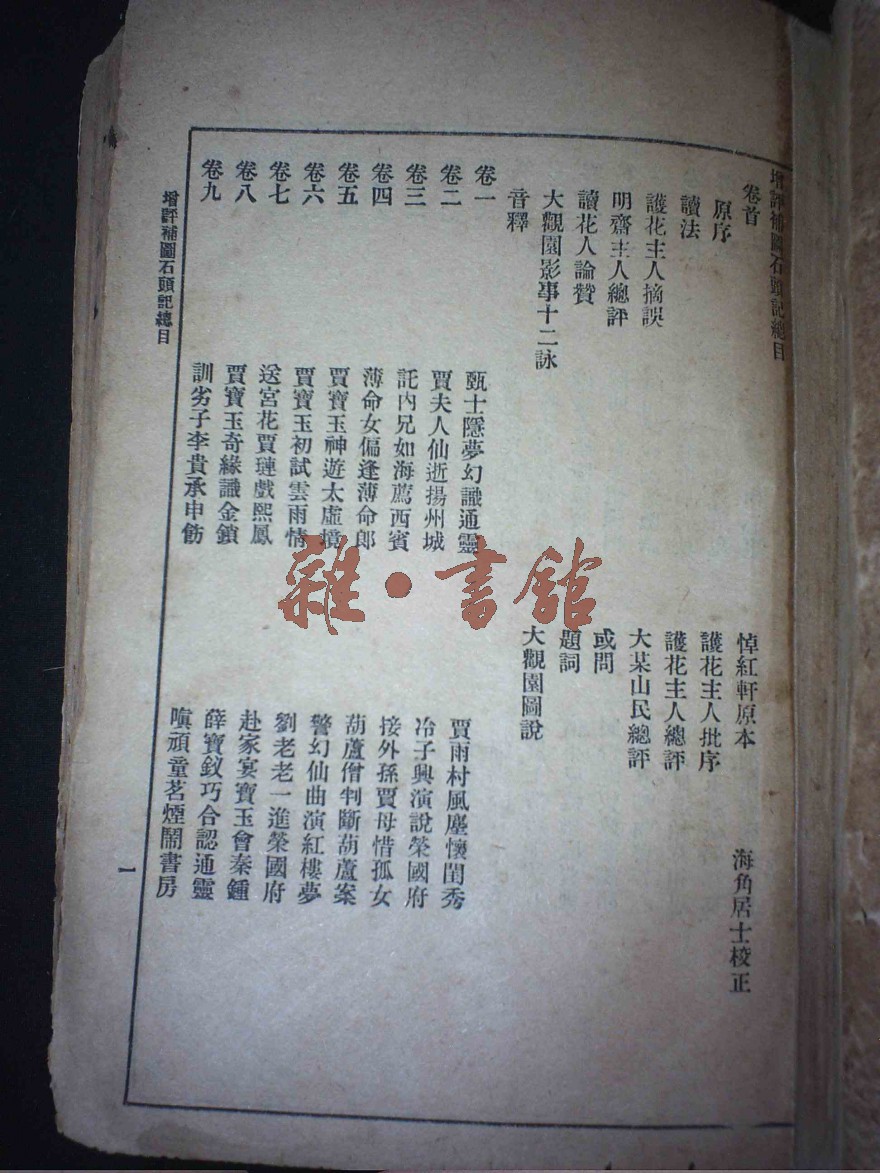 增評補圖石頭記總目
卷首
悼紅軒原本
海角居士校正
原序
護花主人批序
讀法
護花主人總評
護花主人摘誤
大某山民總評
明齋主人總評
或問
讀花人論贊
題詞
大觀園影事十二詠
大觀園圖說
音釋
卷一
甄士隱夢幻識通靈
賈雨村風塵懷閨秀
卷二
賈夫人仙逝揚州城
冷子興演說榮國府
卷三
託內兄如海薦西賓
接外孫賈母惜孤女
卷四
薄命女偏逢薄命郎
葫蘆僧判斷葫蘆案
卷五
賈寶玉神遊太虛境
警幻仙曲演紅樓夢
卷六
賈寶玉初試雲雨情
劉老老一進榮國府
卷七
送宮花賈璉戲熙鳳
赴家宴寶玉會秦鍾
卷八
賈寶玉奇緣識金鎖
薛寶釵巧合認通靈
卷九
訓劣子李貴承申飭
嗔頑童茗煙鬧書房
增評補圖石頭記總目
一
雜·書館